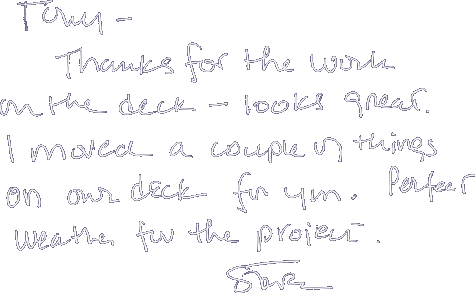 Tony -
Thanks for the work
on the deck - looks great.
I moved a couple of things
on our deck for you. Perfect
weather for the project.
Steve